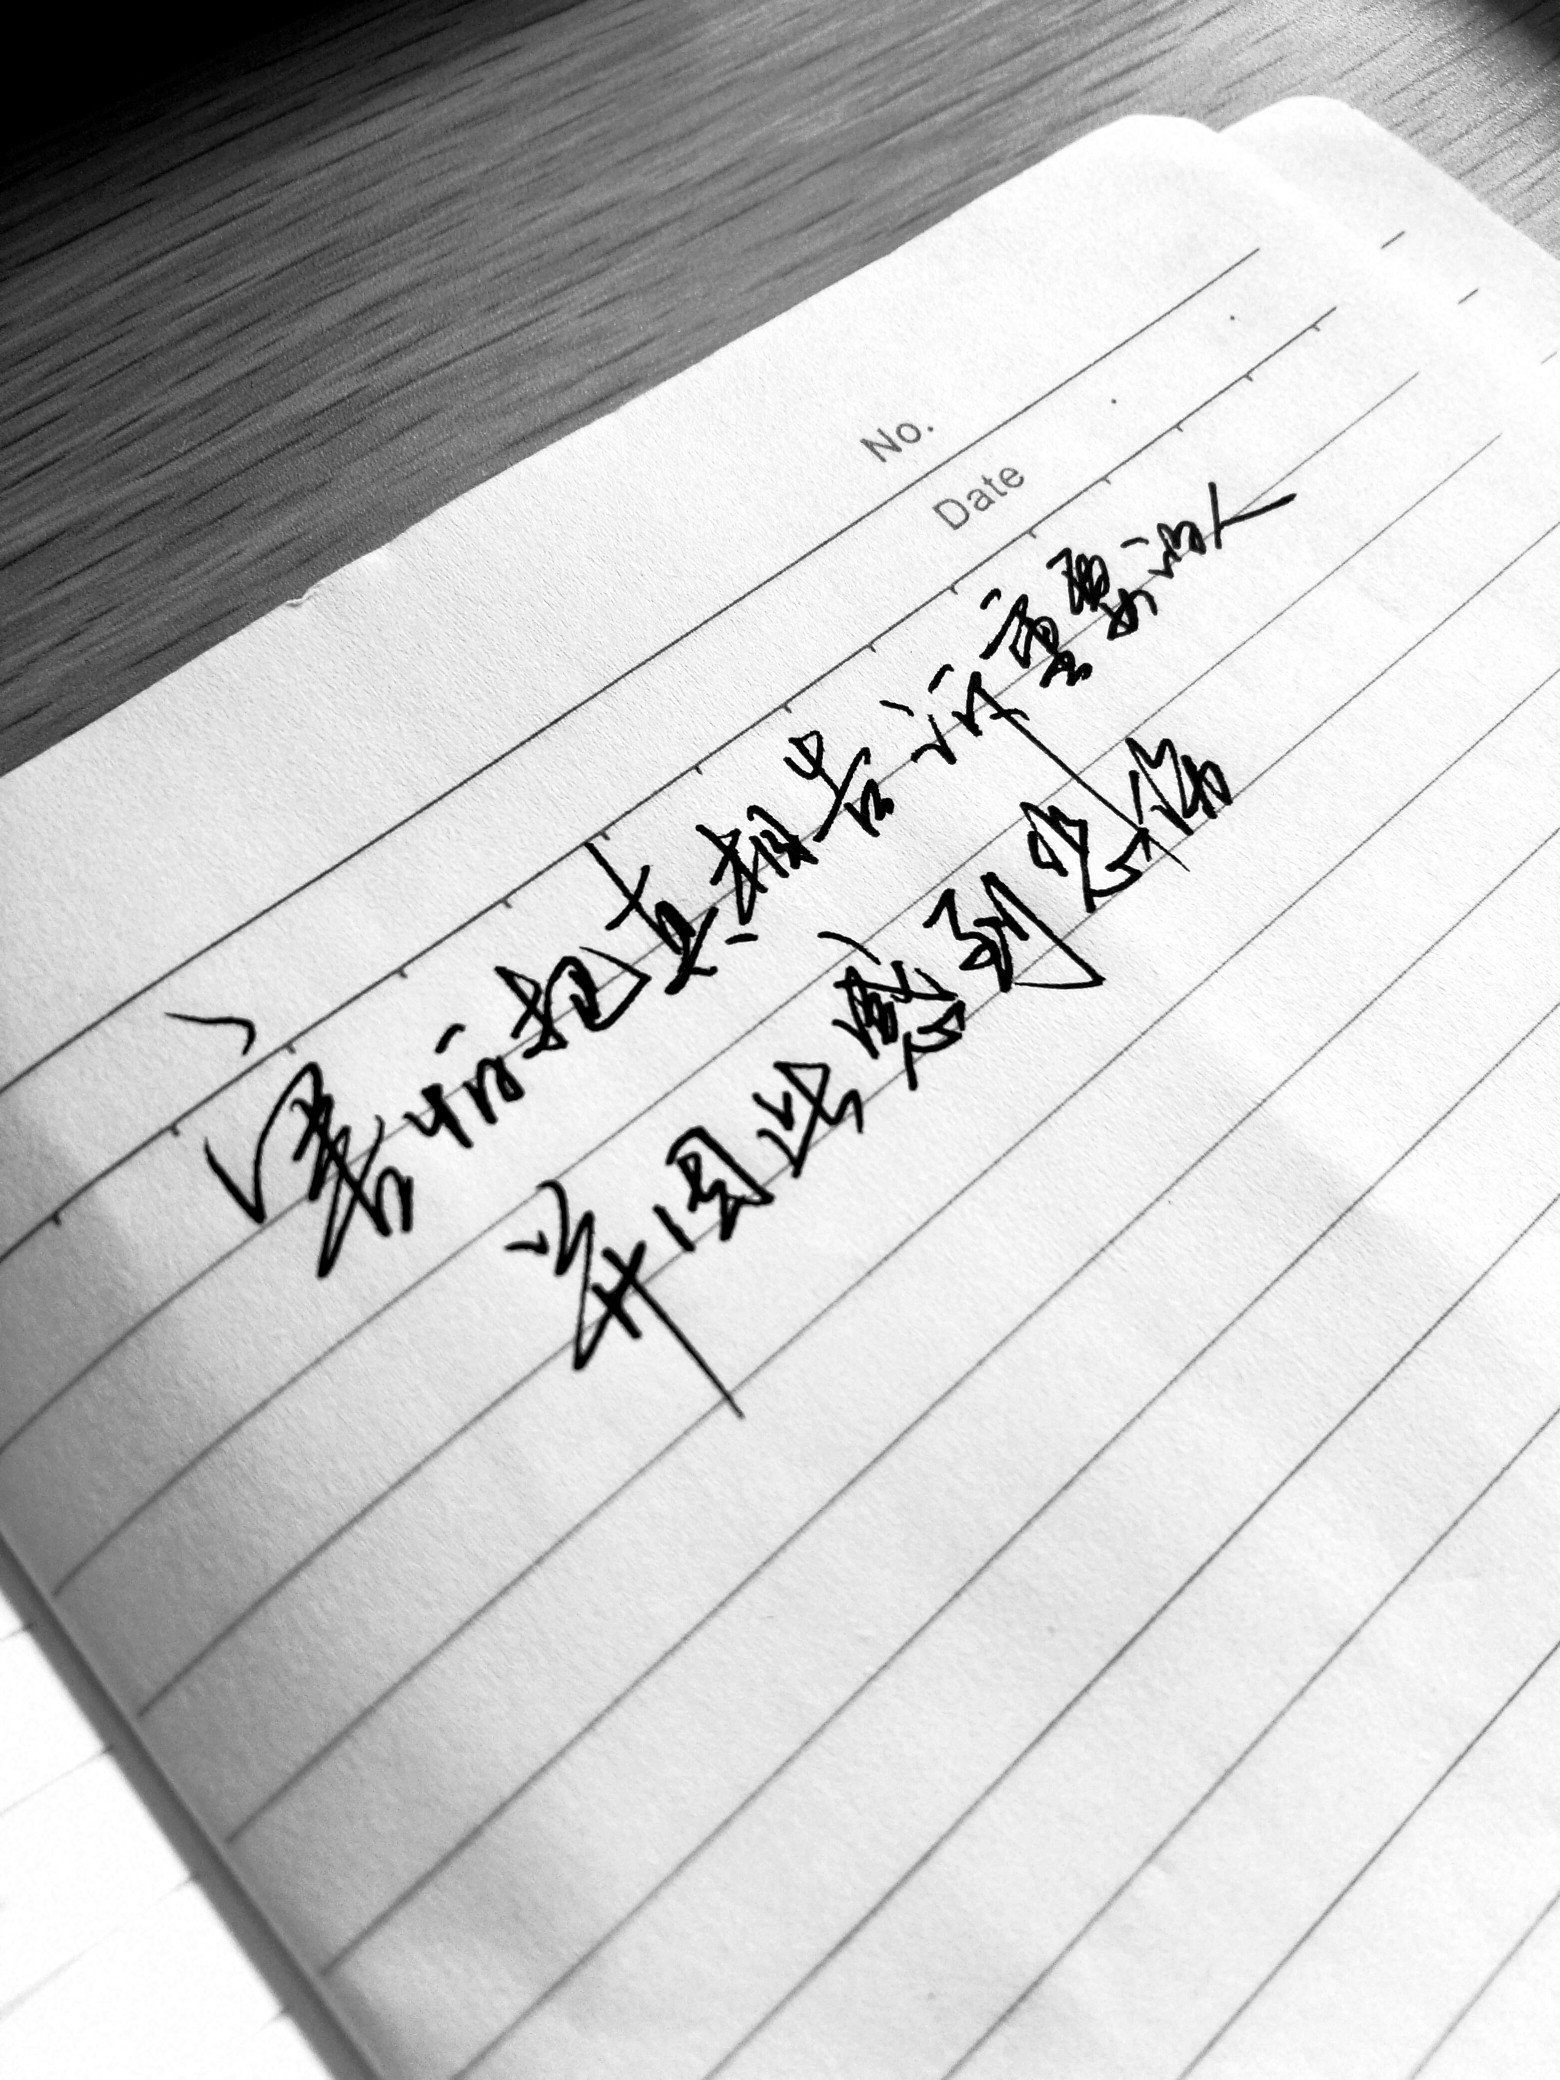 No.
Date
把真相告诉重要的人
并因此感到